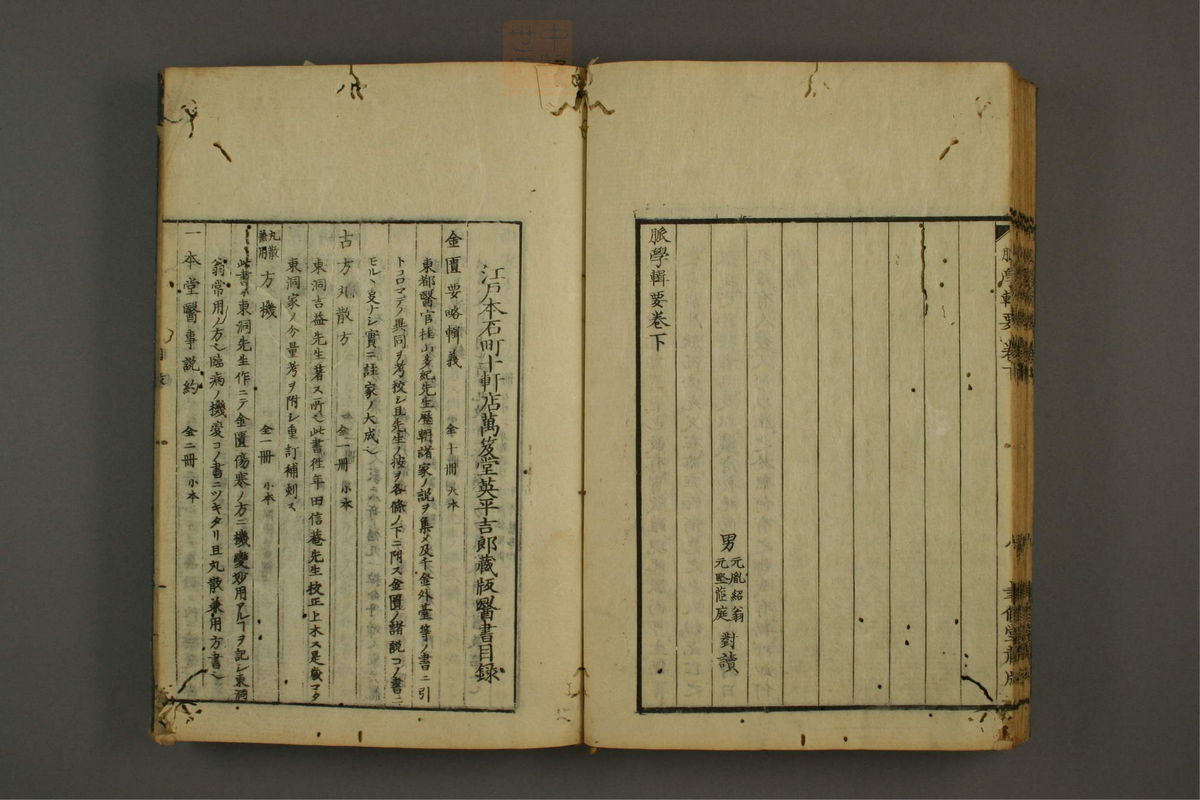 脈學輯要 卷下
聿修堂藏版
男 元胤紹翁 元堅茝庭 對讀
脈學輯要卷下
江戸本石町十軒店萬笈堂英平吉郎藏版醫書目録
金匱要略輯義 全十冊 大本
東都醫官桂山多紀先生歴朝諸家ノ説ヲ集メ及千金外臺等ノ書ニ引
トコロマテノ異同ヲ考校シ且先生ノ按ヲ各條ノ下ニ附ス金匱ノ諸説コノ書ニ
モル丶叓ナシ實ニ註家ノ大成ヘ
古方丸散方 全一冊 小本
東洞吉益先生著ス所ヘ此書徃年田信菴先生校正上木ス是歳マタ
東洞家ノ分量考ヲ附シ重訂補刻ス
丸散兼用 方機 全一冊 小本
此書ハ東洞先生作ニテ金匱傷寒ノ方ニ機變妙用アルヿヲ記シ東洞
翁常用ノ方ヘ臨病ノ機変コノ書ニツキタリ且丸散兼用方書ヘ
一本堂醫事説約 全二冊 小本